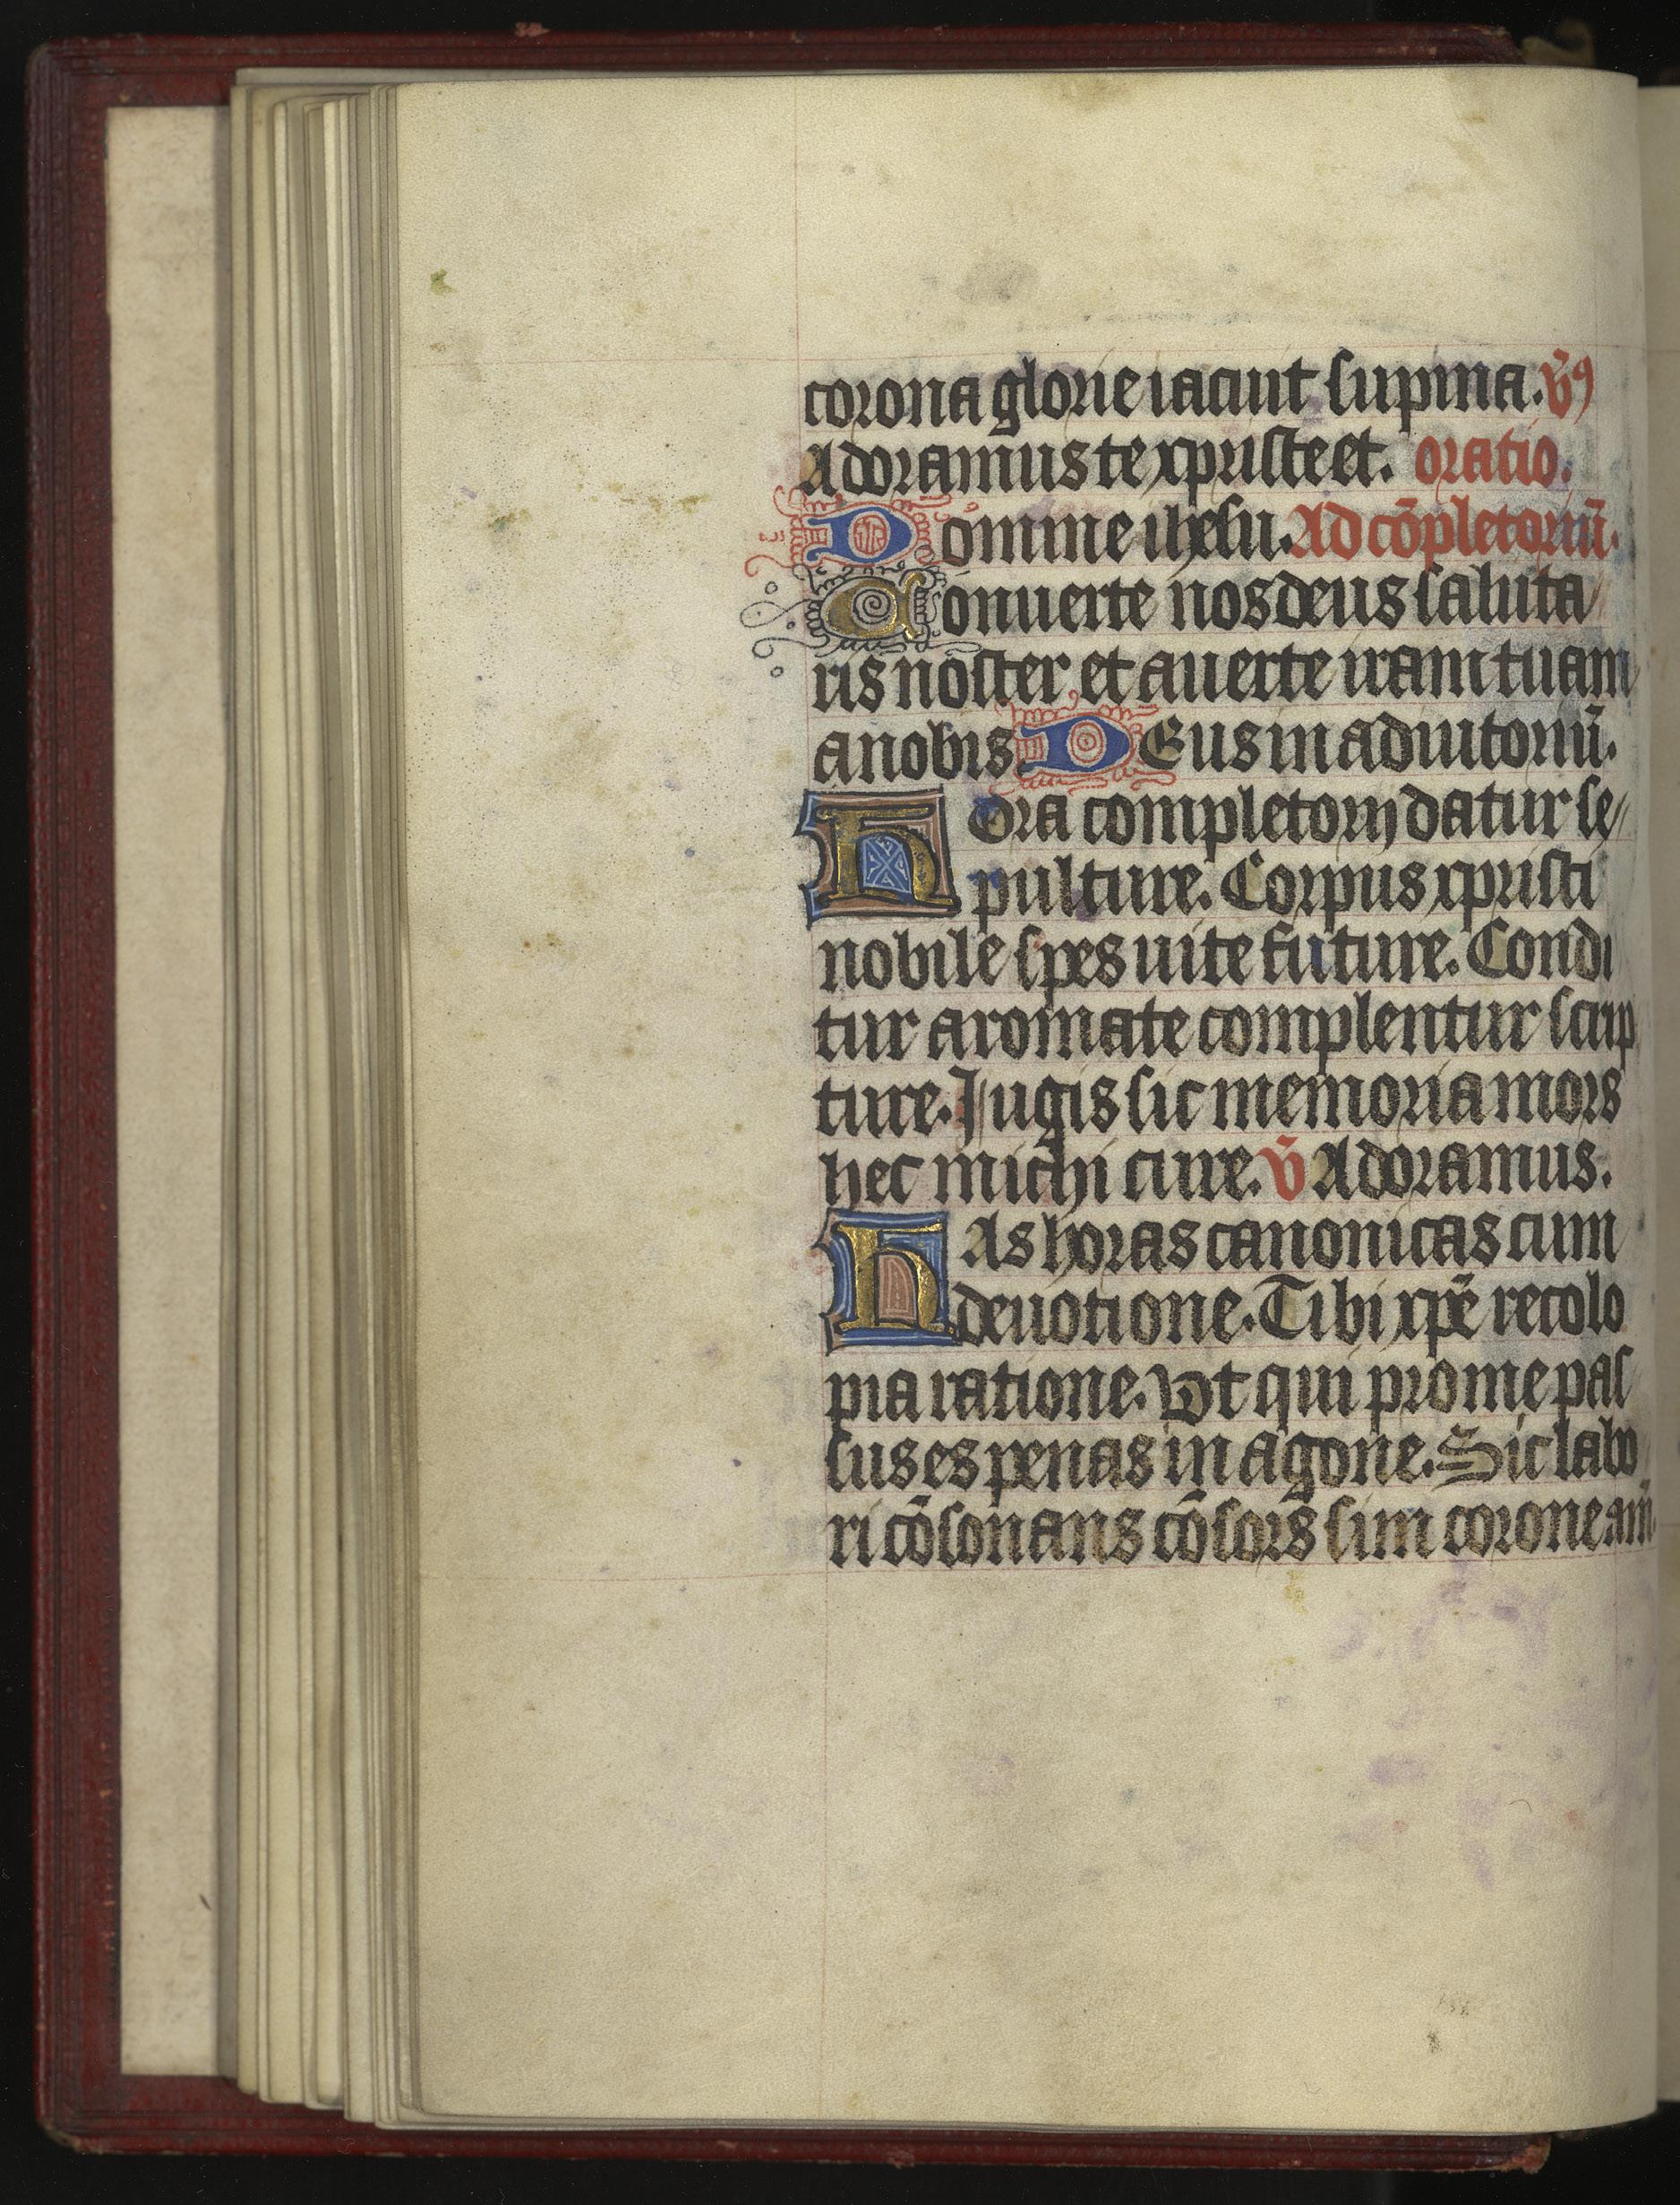 corona glorie iacuit supina. v̄ꝯ
Adoramus te xpriste et. oratio.
Domine ihesu. Ad cōpletoriū.
Conuerte nos deus saluta
ris noster et auerte iram tuam
a nobis. DEus in adiutoriū.
Hora completorij datur se
pulture. Corpus xpristi
nobile spes uite future. Condi
tur aromate complentur scrip
ture. Jugis sic memoria mors
hec michi cure. v̄ Adoramus.
HAs horas canonicas cum
deuotione. Tibi xpē recolo
pia ratione. Vt qui pro me pas
sus es penas in agone. Sic labo
ri cōsonans cōsors sim corone am̄